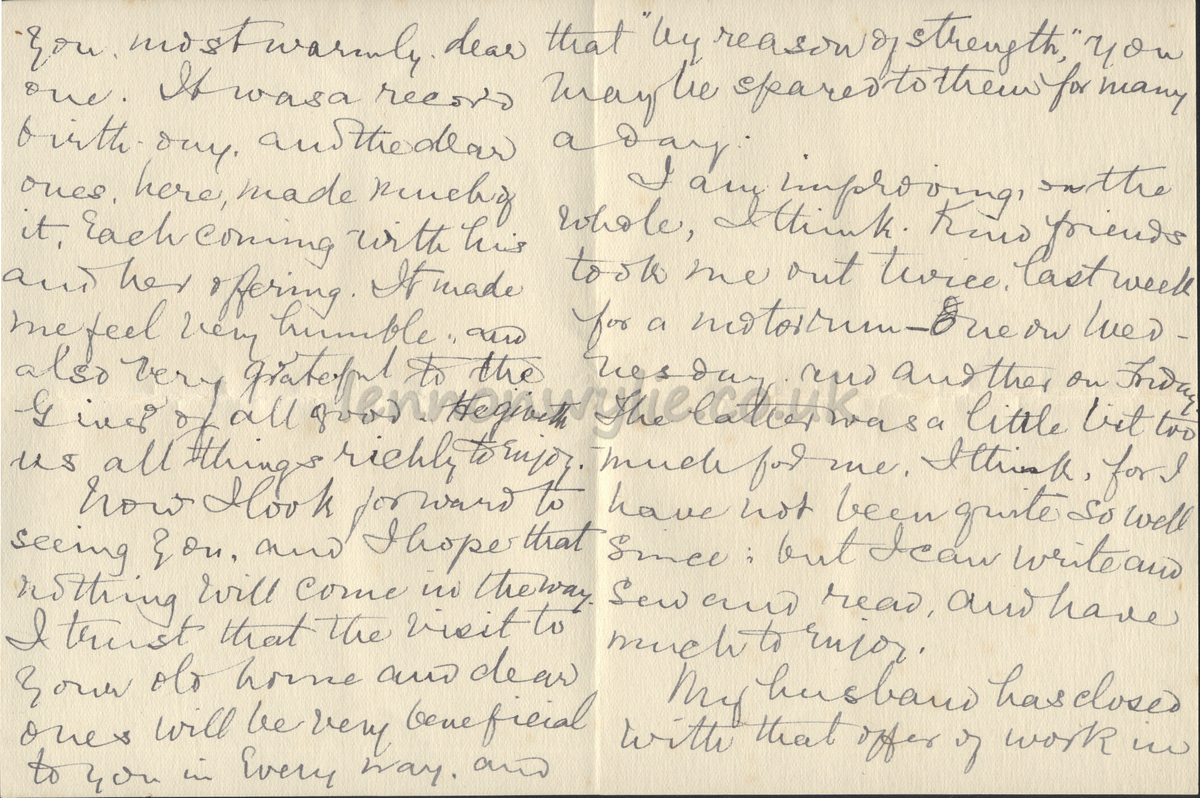 you. most warmly. dear
one. It was a record
birth-day. and the dear
ones, here, made much of
it, Each coming with his
and her offering. It made
me feel very humble. and
also very grateful to the
Giver of all good. He giveth
us all things richly to enjoy.
Now I look forward to
seeing you, and I hope that
nothing will come in the way.
I trust that the visit to
your old home and dear
ones will be very beneficial
to you in Every way. and
that "by reason of strength," you
may be spared to them for many
a day.
I am improving, on the
whole, I think. Kind friends
took me out twice, last week
for a motor run – One on Wed-
nesday and another on Friday
The latter was a little bit too
much for me, I think, for I
have not been quite so well
since; but I can write and
sew and read, and have
much to enjoy.
My husband has closed
with that offer of work in
lennonwylie.co.uk